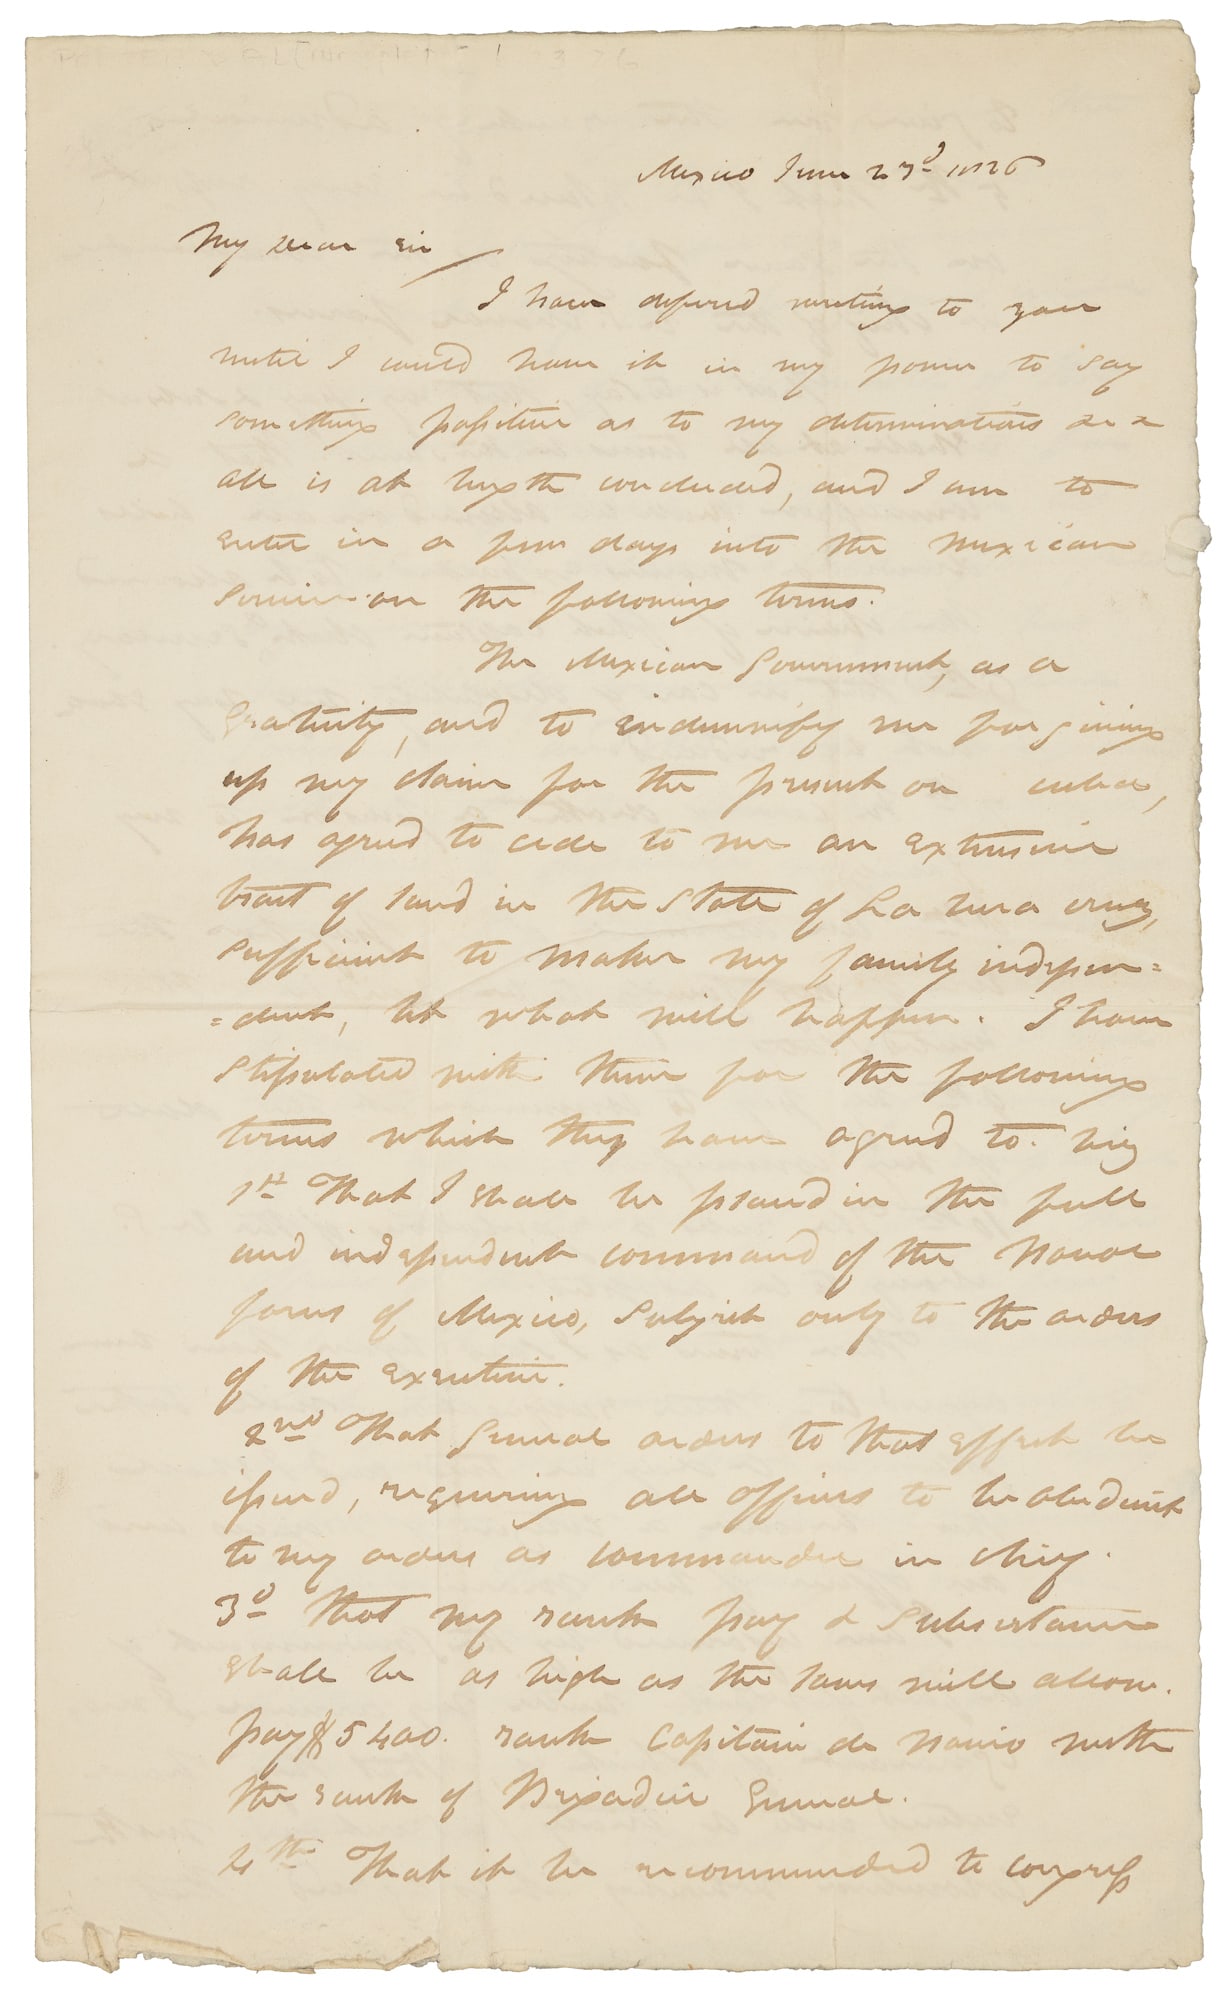 Mexico June 23d 1826
My dear sir
I have defered writing to you
until I could have it in my power to say
something positive as to my determinations &c &
all is at length concluded, and I am to
enter in a few days into the Mexican
Service on the following terms.
The Mexican Government, as a
gratuity, and to indemnify me for giving
up my claim for the present on
has agreed to cede to me an extensive
tract of land in the State of La Vera cruz,
sufficient to make my family indepen=
=dent, let what will happen. I have
stipulated with them for the following
terms which they have agreed to. viz
1st That I shall be placed in the full
and independent command of the Naval
forces of Mexico, subject only to the orders
of the executive.
2nd That General orders to that effect be
issued, requiring all officers to be obedient
to my orders as commander in chief.
3d That my rank pay & subsistance
shall be as high as the laws will allow.
pay $5400. rank Capitain de Navio with
the rank of Brigadier General.
4th That it be recommended to congress